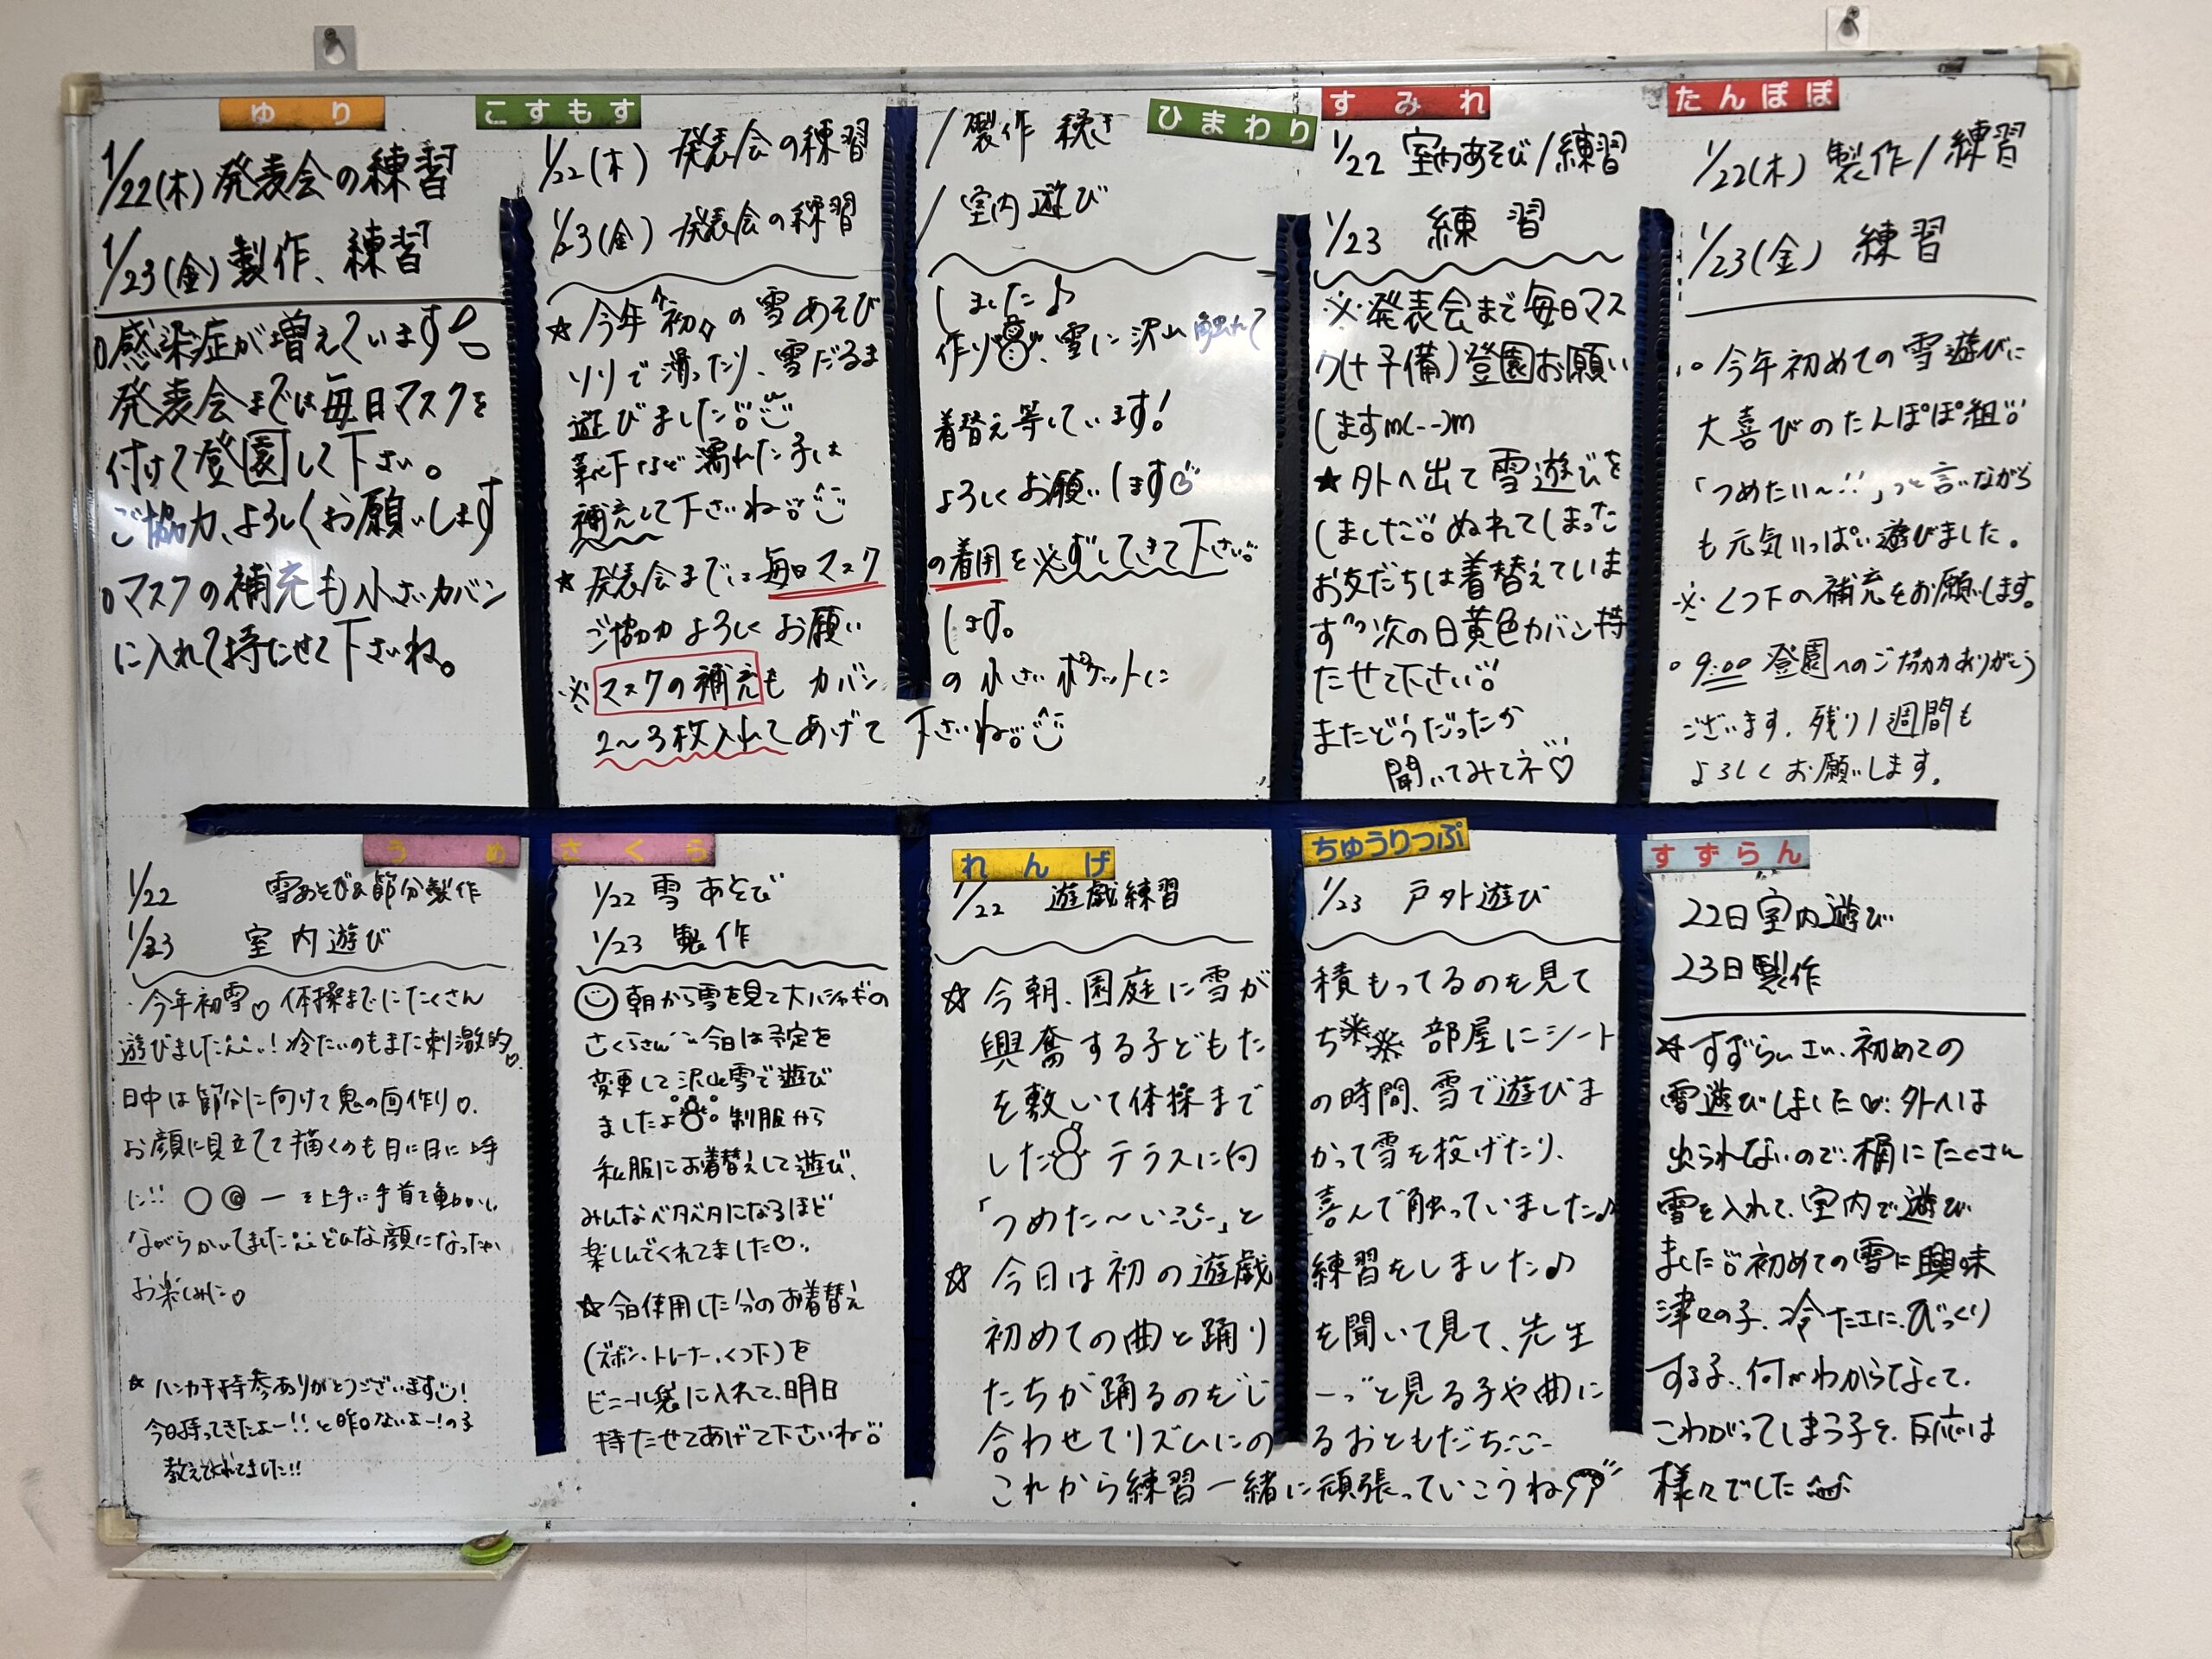 ゆり
1/22(木) 発表会の練習
1/23(金) 製作、練習
○感染症が増えています!!
発表会までは毎日マスクを
付けて登園して下さい。
ご協力、よろしくお願いします
○マスクの補充も小さいカバン
に入れて持たせて下さいね。
こすもす
ひまわり
1/22(木) 発表会の練習 / 製作 続き
1/23(金) 発表会の練習 / 室内遊び
☆今年初の雪あそびしました♪
ソリで滑ったり、雪だるま作り、雪に沢山触れて
遊びました!!
靴下など濡れた子は着替え等しています!
補充して下さいね!! よろしくお願いします
☆発表会までは毎日マスクの着用を必ずしてきて下さい!!
ご協力よろしくお願いします。
※マスクの補充もカバンの小さいポケットに
2〜3枚入れてあげて下さいね!!
すみれ
1/22 室内あそび/練習
1/23 練習
※発表会まで毎日マス
ク(+予備)登園お願い
しますm(--)m
★外へ出て雪遊びを
しました!! ぬれてしまった
お友だちは着替えていま
す 次の日黄色カバン持
たせて下さい!!
またどうだったか
聞いてみてネ♡
たんぽぽ
1/22(木) 製作/練習
1/23(金) 練習
○今年初めての雪遊びに
大喜びのたんぽぽ組!!
「つめたい〜!!」っと言いながら
も元気いっぱい遊びました。
※くつ下の補充をお願いします。
○9:00 登園へのご協力ありがとう
ございます。残り1週間も
よろしくお願いします。
うめ
1/22 雪あそび&節分製作
1/23 室内遊び
・今年初雪♡ 体操までにたくさん
遊びました!冷たいのもまた刺激的♡
日中は節分に向けて鬼の面作り♡.
お顔に見立てて描くのも日に日に上手
に!! ○ ◎ ー を上手に手首を動かし
ながらかいてました どんな顔になったか
お楽しみに♡
☆ハンカチ持参ありがとうございます!
今日持ってきたよー!!と昨日ないよー!の子
教えてくれてました!!
さくら
1/22 雪あそび
1/23 製作
朝から雪を見て大ハシャギの
さくらさん 今日は予定を
変更して沢山雪で遊び
ましたよ 制服から
私服にお着替えして遊び、
みんなベタベタになるほど
楽しんでくれてました♡
☆今日使用した分のお着替え
(ズボン・トレーナー・くつ下)を
ビニール袋に入れて、明日
持たせてあげて下さいね!!
れんげ
ちゅうりっぷ
1/22 遊戯練習 1/23 戸外遊び
☆今朝、園庭に雪が積もってるのを見て
興奮する子どもたち 部屋にシート
を敷いて体操までの時間、雪で遊びま
した テラスに向かって雪を投げたり、
「つめた〜い」と喜んで触っていました♪
☆今日は初の遊戯練習をしました♪
初めての曲と踊りを聞いて見て、先生
たちが踊るのをじーっと見る子や曲に
合わせてリズムにのるおともだち
これから練習一緒に頑張っていこうね
すずらん
22日 室内遊び
23日 製作
☆すずらんさん、初めての
雪遊びしました♡ 外へは
出られないので、桶にたくさん
雪を入れて、室内で遊び
ました!! 初めての雪に興味
津々の子、冷たさにびっくり
する子、何かわからなくて、
こわがってしまう子と、反応は
様々でした